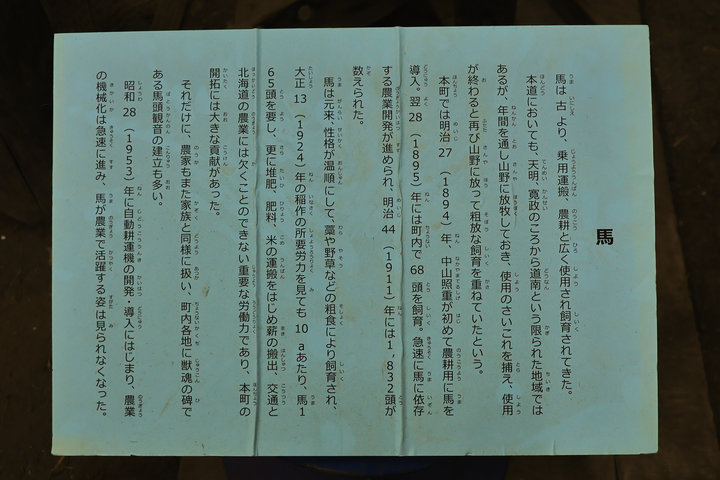 馬
馬は古より、乗用運搬、農耕と広く使用され飼育されてきた。
本道においても、天明、寛政のころから道南という限られた地域では
あるが、年間を通し山野に放牧しておき、使用のさいこれを捕え、使用
が終わると再び山野に放つて粗放な飼育を重ねていたという。
本町では明治27（1894）年、中山照重が初めて農耕用に馬を
導入。翌28（1895）年には町内で68頭を飼育。急速に馬に依存
する農業開発が進められ、明治44（1911）年には1,832頭が
数えられた。
馬は元来、性格が温順にして、藁や野草などの粗食により飼育され、
大正13（1924）年の稲作の所要労力を見ても10aあたり、馬1
65頭を要し、更に堆肥、肥料、米の運搬をはじめ薪の搬出、交通と
北海道の農業には欠くことのできない重要な労働力であり、本町の
開拓には大きな貢献があった。
それだけに、農家もまた家族と同様に扱い、町内各地に獣魂の碑で
ある馬頭観音の建立も多い。
昭和28（1953）年に自動耕運機の開発・導入にはじまり、農業
の機械化は急速に進み、馬が農業で活躍する姿は見られなくなった。